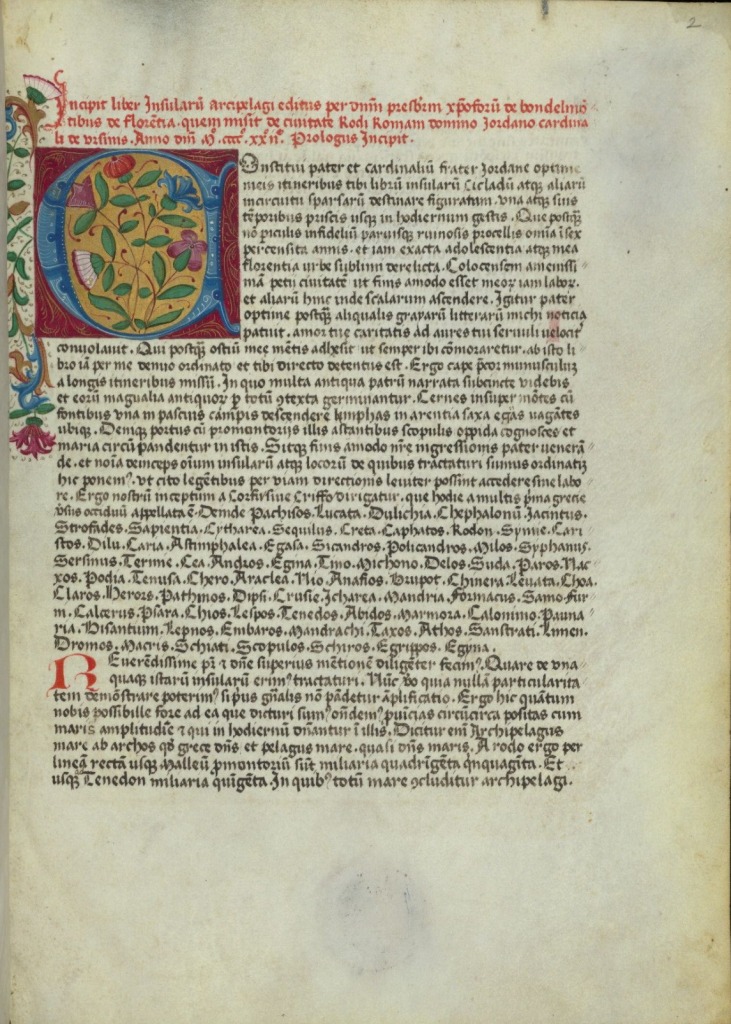 2
Incipit liber Insularū Arcipelagi editus per dnm̄ presbrm xp̄oforū de bondelmō
tibus de florētia. quem misit de civitate Rodi Romam domino Iordano cardina
li de ursinis. Anno dm̄ Mº. ccccº. xxºnº. Prologus Incipit.
Constitui pater et cardinaliū frater Iordane optime
meis itineribus tibi librū insularū Cicladū atq; aliarū
incircuitu sparsarū destinare figuratum. una atq; suis
tēporibus priscis usq; in hodiernum gestis. Que postq̄
nō piculis infidelium parvisq; ruinosis procellis omīa ī sex
percensita annis. et iam exacta adolescentia atq; mea
florentia urbe sublimi derelicta. Colocensem amenissi
mā petii civitatē ut finis amodo esset meoꝝ iam labor.
et aliarū hinc inde scalarum ascendere. Igitur pater
optime postq̄ aliqualis grāparū litterarū michi noticia
patuit. amor tue caritatis ad aures tui servuli velocit̄
convolavit. Qui postq̄ ostiū mee mētis adhesit ut semper ibi cōmoraretur. ab isto li
bro iā per me denuo ordinato et tibi directo detentus est. Ergo cape p̄cor munusculuꝫ
a longis itineribus missū. In quo multa antiqua patrū narrata subcincte videbis
et eorū magnalia antiquoꝝ p totū ꝯtexta germinantur. Cernes insuper mōtes cū
fontibus una in pascuis campis descendere kinphas in arentia saxa egas vagātes
ubiq;. Deniq; portus cū promontoriis illis astantibus scopulis oppida cognosces et
maria circū pandentur in istis. Sitq; finis amodo nr̄e ingressionis pater venerā
de. et noīa deinceps oīum insularū atq; locorū de quibus tractaturi sumus ordinatiꝫ
hic ponem⁹. ut cito legētibus per viam directionis leviter possint accedere sine labo
re. Ergo nostrū inceptum a Corfu sive Criffo dirigatur. que hodie a multis p̄ma grecie
vs̄us occiduū appellata ē. Deinde Pachisos. Lucata. Dulichia. Chephalonū Iacintus.
Strofades. Sapientia. Cytharea. Sequilus. Creta. Caphatos. Rodon. Symie. Cari
stos. Dilu. Caria. Astimphalea. Egasa. Sicandros. Policandros. Milos. Syphanus.
Sersinus. Termie. Cea. Andros. Egina. Tino. Michono. Delos. Suda. Paros. Nac
xos. Podia. Tenusa. Chero. Araclea. Nio. Anafios. Brupot. Chinera. Levata. Choa.
Claros. Herors. Pathmos. Dipsi. Crusie. Icharea. Mandria. Formacus. Samo. Fur
ni. Calcerus. Psara. Chios. Lespos. Tenedos. Abidos. Marmora. Calonimo. Pauna
ria. Bisantium. Lepnos. Embaros. Mandrachi. Taxos. Athos. Sanstrati. Limen.
Dromos. Macris. Schiati. Scopulos. Schiros. Egrippos. Egyna.
Reverēdissime p̄r & dn̄e superius mētionē diligēter fecim⁹. Quare de una
quaq; istarū insularū erim⁹ tractaturi. Nūc vo quia nullā particularita
tem demōstrare poterim⁹ si prius gn̄alis nō pādetur āplificatio. Ergo hic quātum
nobis possibille fore ad ea que dicturi sum⁹ on̄dem⁹ p̄vīcias circūcirca positas cum
maris amplitudīe & qui in hodiernū dn̄antur ī illis. Dicitur enī Archipelagus
mare ab archos qd grece dn̄s et pelagus mare. quasi dn̄s maris. A rodo ergo per
lineā rectā usq; Malleū p̄montoriū sūt miliaria quadrīgēta q̄nquagīta. Et
usq; Tenedon miliaria quīgēta. In quib⁹ totū mare ꝯcluditur archipelagi.